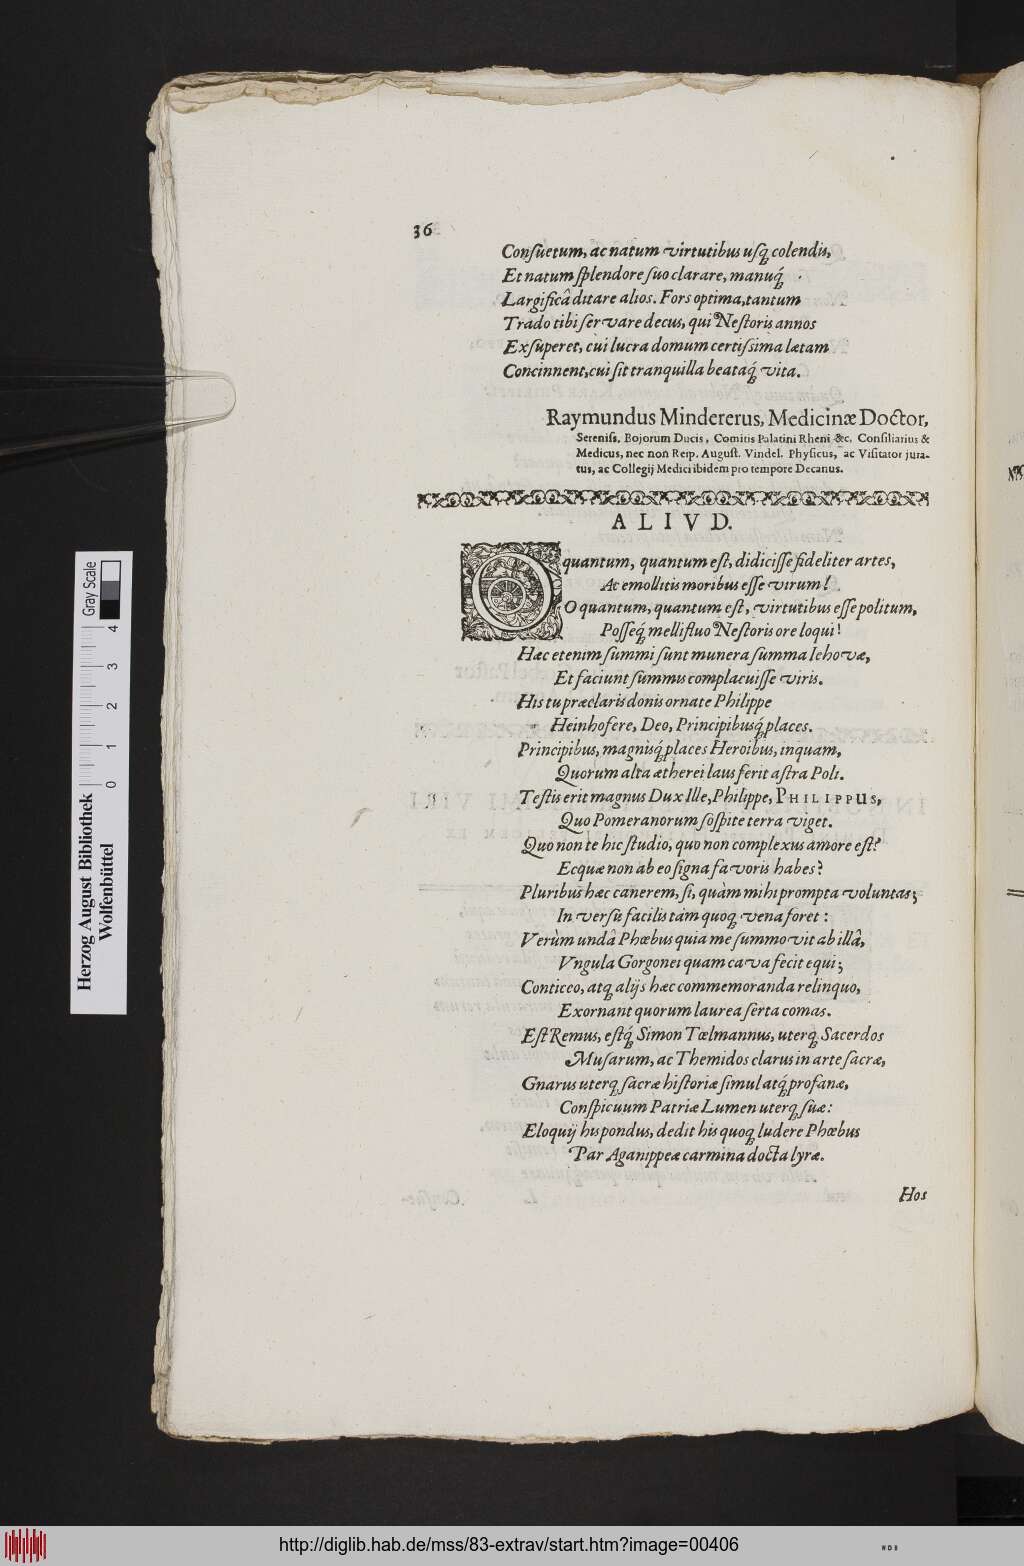 36
Consuetum, ac natum virtutibus usq́ colendis,
Et natum splendore suo clarare, manuq́
Largificâ ditare alios. Fors optima, tantum
Trado tibi servare decus, qui Nestoris annos
Exsuperet, cui lucra domum certissima lætam
Concinnent, cui sit tranquilla beataq́ vita.
Raymundus Mindererus, Medicinæ Doctor,
Sereniss. Bojorum Ducis, Comitis Palatini Rheni &c. Consiliarius &
Medicus, nec non Reip. August. Vindel. Physicus, ac Visitator jura-
tus, ac Collegij Medici ibidem pro tempore Decanus.
ALIVD.
O quantum, quantum est, didicisse fideliter artes,
At emollitis moribus esse virum!
O quantum, quantum est, virtutibus esse politum,
Posseq́ mellifluo Nestoris ore loqui!
Hæc etenim summi sunt munera summa Iehovæ,
Et faciunt summis complacuisse viris.
His tu præclaris donis ornate Philippe
Heinhofere, Deo, Principibusq́ places.
Principibus, magnisq́ places Heroibus, inquam,
Quorum alta ætherei laus ferit astra Poli.
Testis erit magnus Dux Ille, Philippe, PHILIPPUS,
Quo Pomeranorum sospite terra viget.
Quo non te hic studio, quo non complexus amore est?
Ecquæ non ab eo signa favoris habes?
Pluribus hæc canerem, si, quàm mihi prompta voluntas;
In versu facilis tàm quoq́ vena foret:
Verùm undâ Phœbus quia me summovit ab illâ,
Vngula Gorgonei quam cava fecit equi;
Conticeo, atq́ alijs hæc commemoranda relinquo,
Exornant quorum laurea serta comas.
Est Remus, estq́ Simon Tœlmannus, uterq́ Sacerdos
Musarum, ac Themidos clarus in arte sacræ,
Gnarus uterq́ sacræ historiæ simul atq́ profanæ,
Conspicuum Patriæ Lumen uterq́ suæ:
Eloquij his pondus, dedit his quoq́ ludere Phœbus
Par Aganippeæ carmina docta lyræ.
Hos
Herzog August Bibliothek
Wolfenbüttel
Gray Scale
0 1 2 3 4
http://diglib.hab.de/mss/83-extrav/start.htm?image=00406